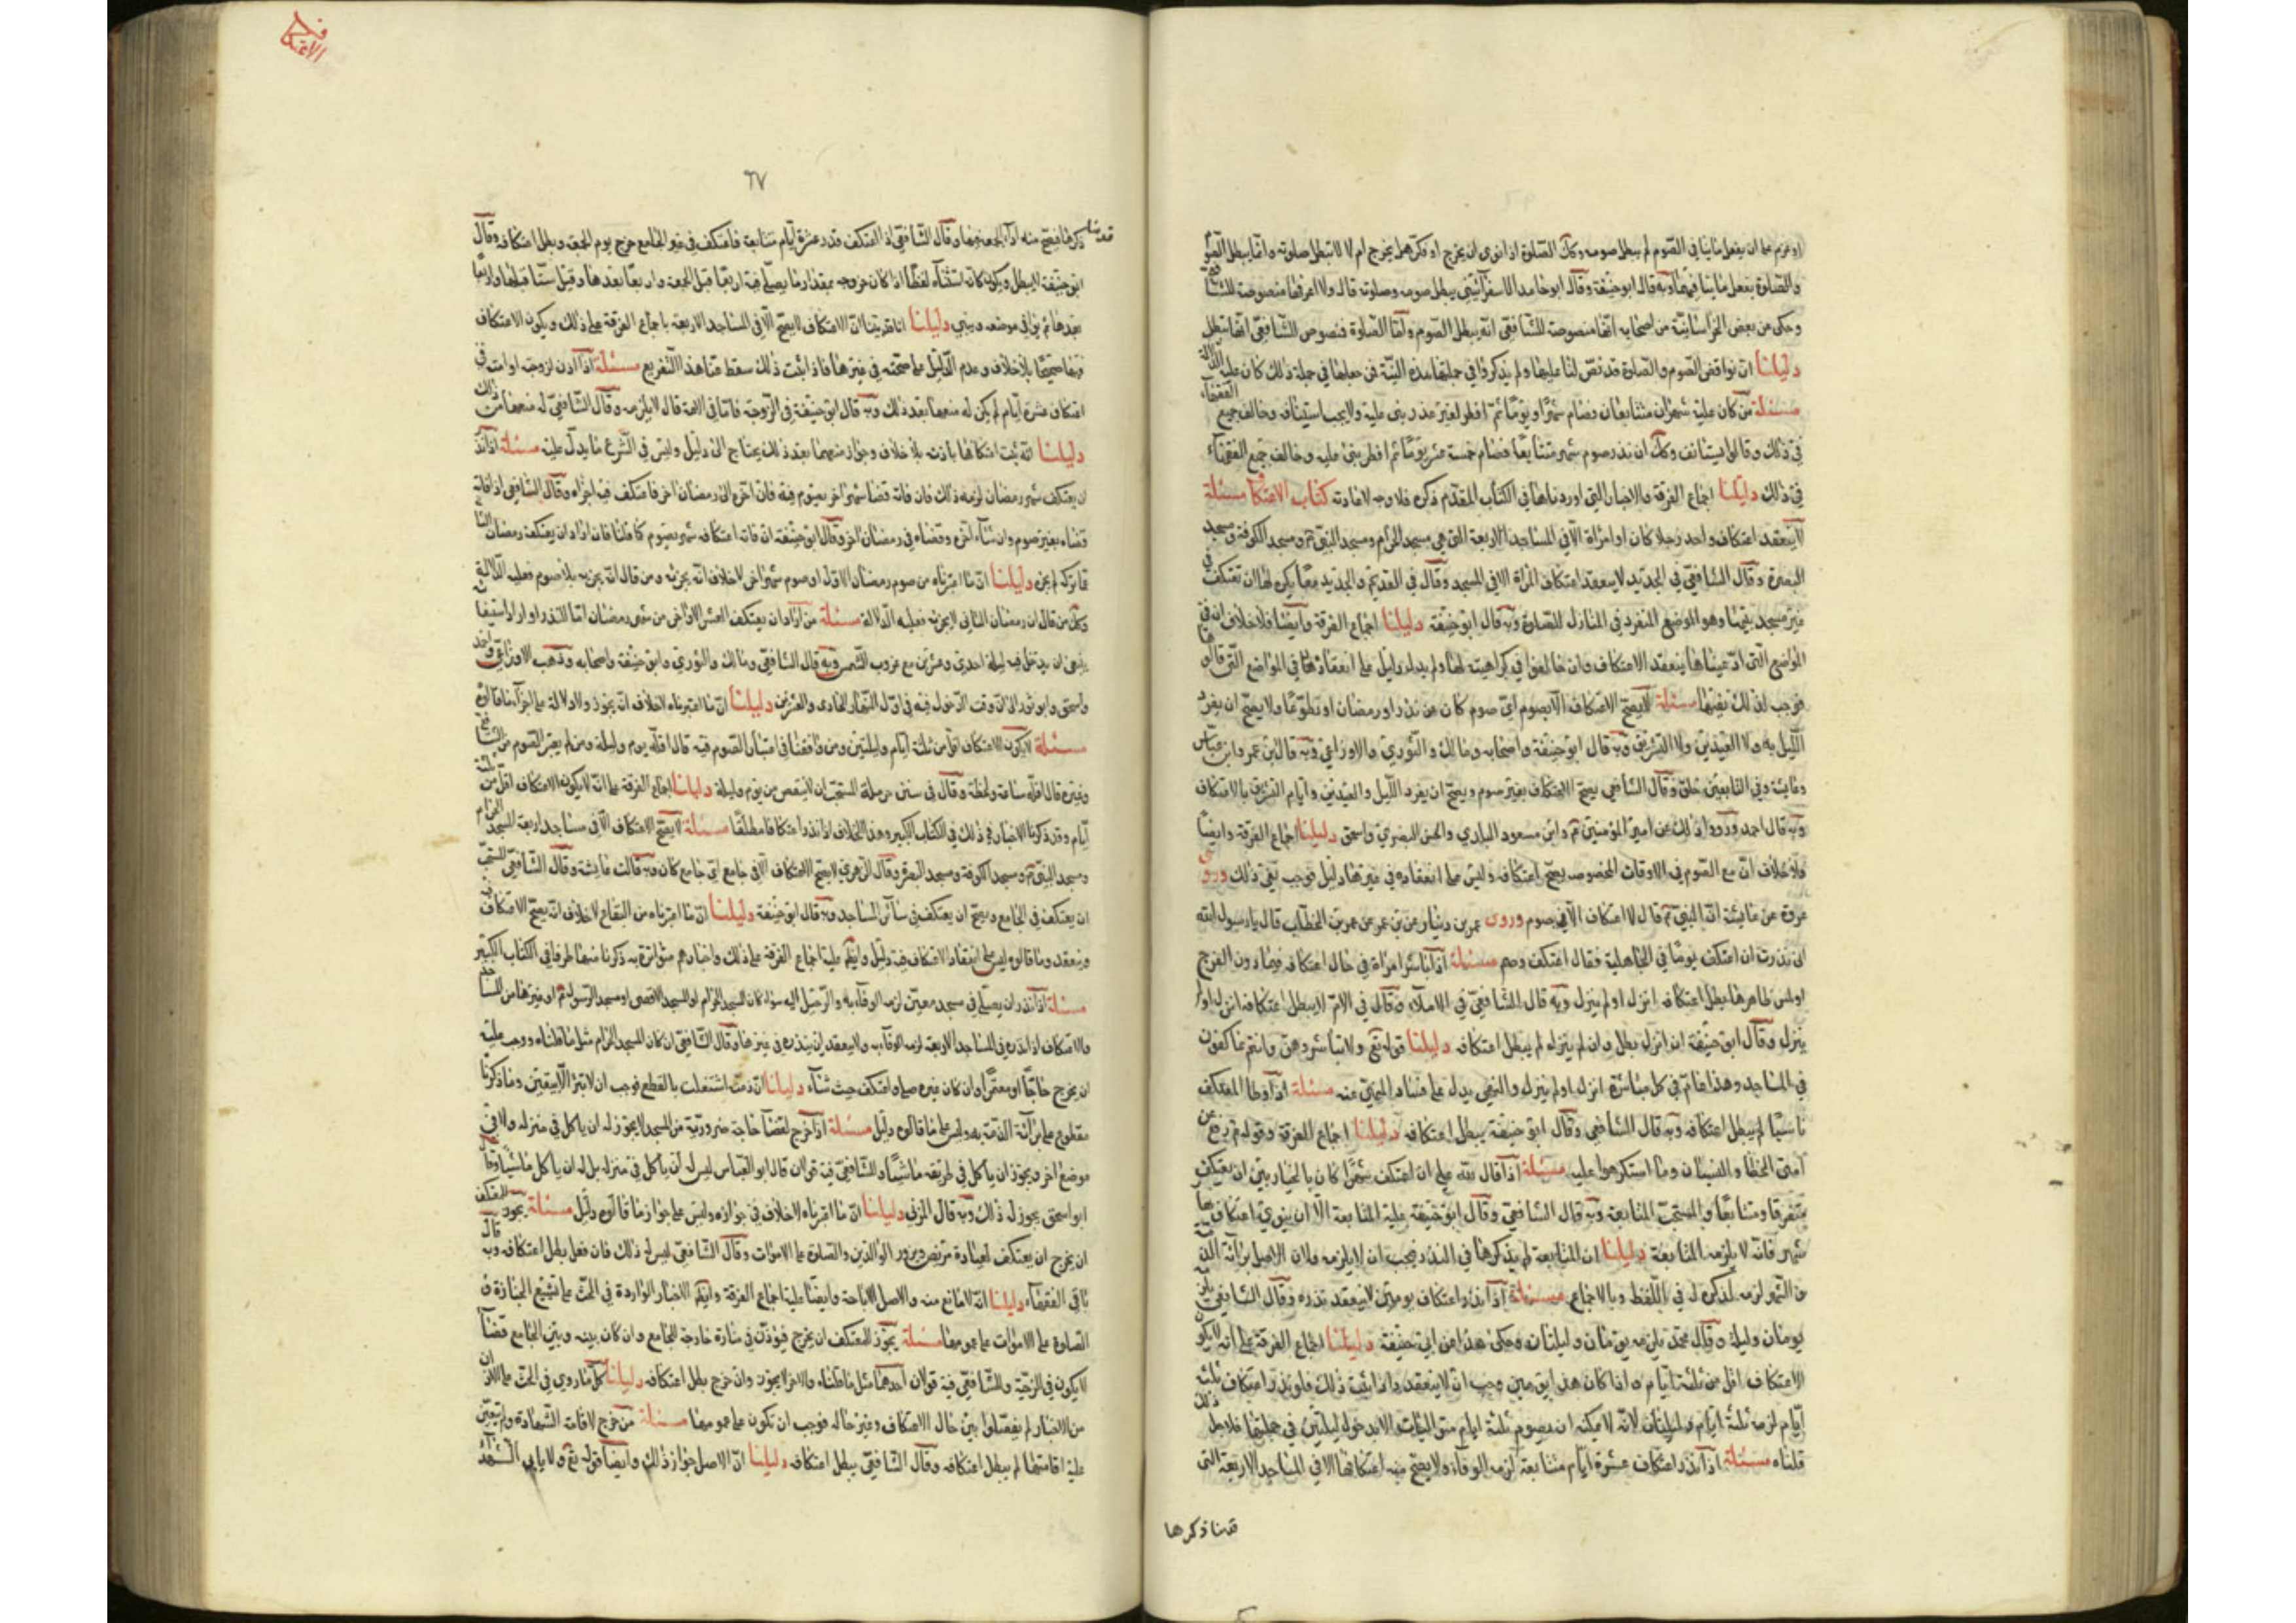 او عزم على ان يفعل ما ينافي الصوم لم يبطل صومه وكك الصلوة اذا نوى ان يخرج او فكر هل يخرج ام لا لا تبطل صلوته وانما يبطل الصوم
والصلوة بفعل ما ينافيهما وبه قال ابو حنيفة وقال ابو حامد الاسفرايني يبطل صومه وصلوته قال ولا اعرفها منصوصة للشافعي
وحكى عن بعض الخراسانية من اصحابه انها منصوصة للشافعي انه يبطل الصوم واما الصلوة فنصوص الشافعي انها تبطل
دليلنا ان نواقض الصوم والصلوة قد نص لنا عليها ولم يذكروا في جملتها هذه النية فمن جعلها في جملة ذلك كان عليه الدلالة
مسئلة من كان عليه شهران متتابعان فصام شهرا ويوما ثم افطر لغير عذر بنى عليه ولا يجب استينافه وخالف جميع الفقهاء
في ذلك وقالوا يستانف وكك ان نذر صوم شهر متتابعا فصام خمسة عشر يوما ثم افطر بنى عليه وخالف جميع الفقهاء
في ذلك دليلنا اجماع الفرقة والاخبار التي اوردناها في الكتاب المقدم ذكره فلا وجه لاعادته كتاب الاعتكاف مسئلة
لا ينعقد اعتكاف واحد رجلا كان او امراة الا في المساجد الاربعة التي هي مسجد الحرام ومسجد النبي ومسجد الكوفة ومسجد
البصرة وقال الشافعي في الجديد لا ينعقد اعتكاف المراة الا في المسجد وقال في القديم والجديد معا يكره لها ان تعتكف في
غير مسجد بيتها وهو الموضع المنفرد في المنازل للصلوة وبه قال ابو حنيفة دليلنا اجماع الفرقة وايضا فلا خلاف ان في
المواضع التي ادعيناها ينعقد الاعتكاف وان خالفوا في كراهيته لها ولم يدل دليل على انعقادها في المواضع التي قالوها
فوجب لذلك نفيها مسئلة لا يصح الاعتكاف الا بصوم اي صوم كان عن نذر او رمضان او تطوعا ولا يصح ان يفرد
الليل به ولا العيدين ولا التشريق وبه قال ابو حنيفة واصحابه ومالك والثوري والاوزاعي وبه قال ابن عمر وابن عباس
وعايشة وفي التابعين خلق وقال الشافعي يصح الاعتكاف بغير صوم ويصح ان يفرد الليل والعيدين وايام التشريق بالاعتكاف
وبه قال احمد ورووا ذلك عن امير المؤمنين وابن مسعود البدري والحسن البصري واسحق دليلنا اجماع الفرقة وايضا
فلا خلاف ان مع الصوم في الاوقات المخصوصه يصح اعتكافه وليس على انعقاده في غيرها دليل فوجب نفي ذلك وروى
عروة عن عايشة ان النبي قال لا اعتكاف الا في صوم وروى عمر بن دينار عن ابن عمر عن عمر بن الخطاب قال يا رسول الله
اني نذرت ان اعتكف يوما في الجاهلية فقال اعتكف وصم مسئلة اذا باشر امراة في حال اعتكافه فيما دون الفرج
او لمس ظاهرها بطل اعتكافه انزل او لم ينزل وبه قال الشافعي في الاملاء وقال في الام لا يبطل اعتكافه انزل او لم
ينزل وقال ابو حنيفة ان انزل بطل وان لم ينزل لم يبطل اعتكافه دليلنا قوله تع ولا تباشروهن وانتم عاكفون
في المساجد وهذا عام في كل مباشرة انزل او لم ينزل والنهي يدل على فساد المنهي عنه مسئلة اذا وطا المعتكف
ناسيا لم يبطل اعتكافه وبه قال الشافعي وقال ابو حنيفة يبطل اعتكافه دليلنا اجماع الفرقة وقوله رفع عن
امتي الخطا والنسيان وما استكرهوا عليه مسئلة اذا قال لله علي ان اعتكف شهرا كان بالخيار بين ان يعتكف
متفرقا ومتتابعا والمستحب المتابعة وبه قال الشافعي وقال ابو حنيفة عليه المتابعة الا ان ينوي اعتكاف
شهر فانه لا يلزمه المتابعة دليلنا ان المتابعة لم يذكرها في النذر فيجب ان لا يلزمه ولان الاصل براءة الذمة
من الشهر لزمه لذكره له في اللفظ وبالاجماع مسئلة اذا نذر اعتكاف يومين لا ينعقد نذره وقال الشافعي يلزمه
يومان وليلة وقال محمد يلزمه يومان وليلتان وحكي هذا عن ابي حنيفة دليلنا اجماع الفرقة على انه لا يكون
الاعتكاف اقل من ثلثة ايام واذا كان هذا يومين وجب ان لا ينعقد واذا ثبت ذلك فلو نذر اعتكاف ثلثة
ايام لزمه ثلثة ايام وليلتان لانه لا يمكنه ان يصوم ثلثة ايام متواليات الا بدخول ليلتين في جملتها فلاجل ذلك
قلناه مسئلة اذا نذر اعتكاف عشرة ايام متتابعة لزمه الوفاء ولا يصح منه اعتكافها الا في المساجد الاربعة التي
قدمنا ذكرها
الاعتكاف
٦٧
قدمنا ذكرها فيصح منه اداء الجمعة فيها وقال الشافعي اذا اعتكف قدر عشرة ايام متتابعة فاعتكف في غير الجامع خرج يوم الجمعة وبطل اعتكافه وقال
ابو حنيفة لا يبطل ويكون كانه استثناه لفظا اذا كان خروجه بمقدار ما يصلي فيه اربعا قبل الجمعة واربعا بعدها وقيل ستا قبلها واربعا
بعدها ثم يوافي موضعه ويبني دليلنا انا قد بينا ان الاعتكاف لا يصح الا في المساجد الاربعة باجماع الفرقة على ذلك ويكون الاعتكاف
فيها صحيحا بلا خلاف وعدم الدليل على صحته في غيرها فاذا ثبت ذلك سقط عنا هذا التفريع مسئلة اذا اذن لزوجته او امته في
اعتكاف عشرة ايام لم يكن له منعها بعد ذلك وبه قال ابو حنيفة في الزوجة فاما في الامة قال لا يلزمه وقال الشافعي له منعها من ذلك
دليلنا انه ثبت اعتكافها باذنه بلا خلاف وجواز منعهما بعد ذلك يحتاج الى دليل وليس في الشرع ما يدل عليه مسئلة اذا نذر
ان يعتكف شهر رمضان لزمه ذلك فان فاته قضا شهرا اخر يصوم فيه فان اخره الى رمضان اخر فاعتكف فيه اجزاه وقال الشافعي اذا فاته
قضاه بغير صوم وان شاء اخره وقضاه في رمضان اخر وقال ابو حنيفة ان فاته اعتكاف شهر بصوم كما قلنا فان اراد ان يعتكف رمضان الثاني
عما تركه لم يجزه دليلنا ان ما اعتبرناه من صوم رمضان الاول او صوم شهر اخر لا خلاف انه يجزيه ومن قال انه يجزيه بلا صوم فعليه الدلالة
وكك من قال ان رمضان الثاني لا يجزيه فعليه الدلالة مسئلة من اراد ان يعتكف العشر الاواخر من شهر رمضان
ينبغي ان يدخل فيه ليلة احدى وعشرين مع غروب الشمس وبه قال الشافعي ومالك والثوري وابو حنيفة واصحابه وذهب الاوزاعي واحمد
واسحق وابو ثور الى ان وقت الدخول فيه في اول النهار الحادي والعشرين دليلنا ان ما اعتبرناه لا خلاف انه يجوز ولا دلالة على اجزاء ما قالوه
مسئلة لا يكون الاعتكاف اقل من ثلثة ايام وليلتين ومن وافقنا في اعتبار الصوم فيه قال اقله يوم وليلة ومن لم يعتبر الصوم من الشافعي
وغيره قال اقله ساعة ولحظة وقال في سنن حرملة المستحب ان لا ينقص من يوم وليلة دليلنا اجماع الفرقة على انه لا يكون الاعتكاف اقل من ثلثة
ايام وقد ذكرنا الاخبار في ذلك في الكتاب الكبير وهذا الخلاف اذا نذر اعتكافا مطلقا مسئلة لا يصح الاعتكاف الا في مساجد اربعة المسجد الحرام
ومسجد النبي ومسجد الكوفة ومسجد البصرة وقال الزهري لا يصح الاعتكاف الا في جامع اي جامع كان وبه قالت عايشة وقال الشافعي المستحب
ان يعتكف في الجامع ويصح ان يعتكف في سائر المساجد وبه قال ابو حنيفة دليلنا ان ما اعتبرناه من البقاع لا خلاف انه يصح الاعتكاف فيه
وينعقد وما قالوه ليس على انعقاد الاعتكاف فيه دليل وايضا عليه اجماع الفرقة على ذلك واخبارهم متواترة به ذكرنا منها طرفا في الكتاب الكبير
مسئلة اذا نذر ان يصلي في مسجد معين لزمه الوفاء به والرحيل اليه سواء كان المسجد الحرام او المسجد الاقصى او مسجد الرسول او غيرها من المساجد
والاعتكاف اذا نذره في المساجد الاربعة لزمه الوفاء به ولا ينعقد ان ينذره في غيرها وقال الشافعي ان كان المسجد الحرام مثل ما قلناه ووجب عليه
ان يخرج حاجا او معتمرا وان كان غيره صلى واعتكف حيث شاء دليلنا ان ذمته اشتغلت بالقطع فوجب ان لا تبرئ الا بيقين وما ذكرنا
مقطوع على براءة الذمة به وليس على ما قالوه دليل مسئلة اذا خرج لقضاء حاجة ضرورية من المسجد لا يجوز له ان ياكل في منزله ولا في
موضع اخر ويجوز ان ياكل في طريقه ماشيا وللشافعي فيه قولان قال ابو العباس ليس له ان ياكل في منزله بل له ان ياكل ماشيا وقال
ابو اسحق يجوز له ذلك وبه قال المزني دليلنا ان ما اعتبرناه لا خلاف في جوازه وليس على جواز ما قالوه دليل مسئلة يجوز للمعتكف
ان يخرج ان يعتكف لعيادة مريض ويزور الوالدين والصلوة على الاموات وقال الشافعي ليس له ذلك فان فعل بطل اعتكافه وبه قال
باقي الفقهاء دليلنا انه لا مانع منه والاصل الاباحة وايضا عليه اجماع الفرقة وايضا الاخبار الواردة في الحث على تشييع الجنازة و
الصلوة على الاموات على عمومها مسئلة يجوز للمعتكف ان يخرج فيؤذن في منارة خارجة للجامع وان كان بينه وبين الجامع فضاء
لا يكون في الرحبة وللشافعي فيه قولان احدهما مثل ما قلناه والاخر لا يجوز وان خرج بطل اعتكافه دليلنا كل ما روي في الحث على الاذان
من الاخبار لم يفصلوا بين حال الاعتكاف وغير حاله فوجب ان تكون على عمومها مسئلة من خرج لاقامة الشهادة ولم يتعين
عليه اقامتها لم يبطل اعتكافه وقال الشافعي يبطل اعتكافه دليلنا ان الاصل جواز ذلك وايضا قوله تع ولا ياب الشهداء